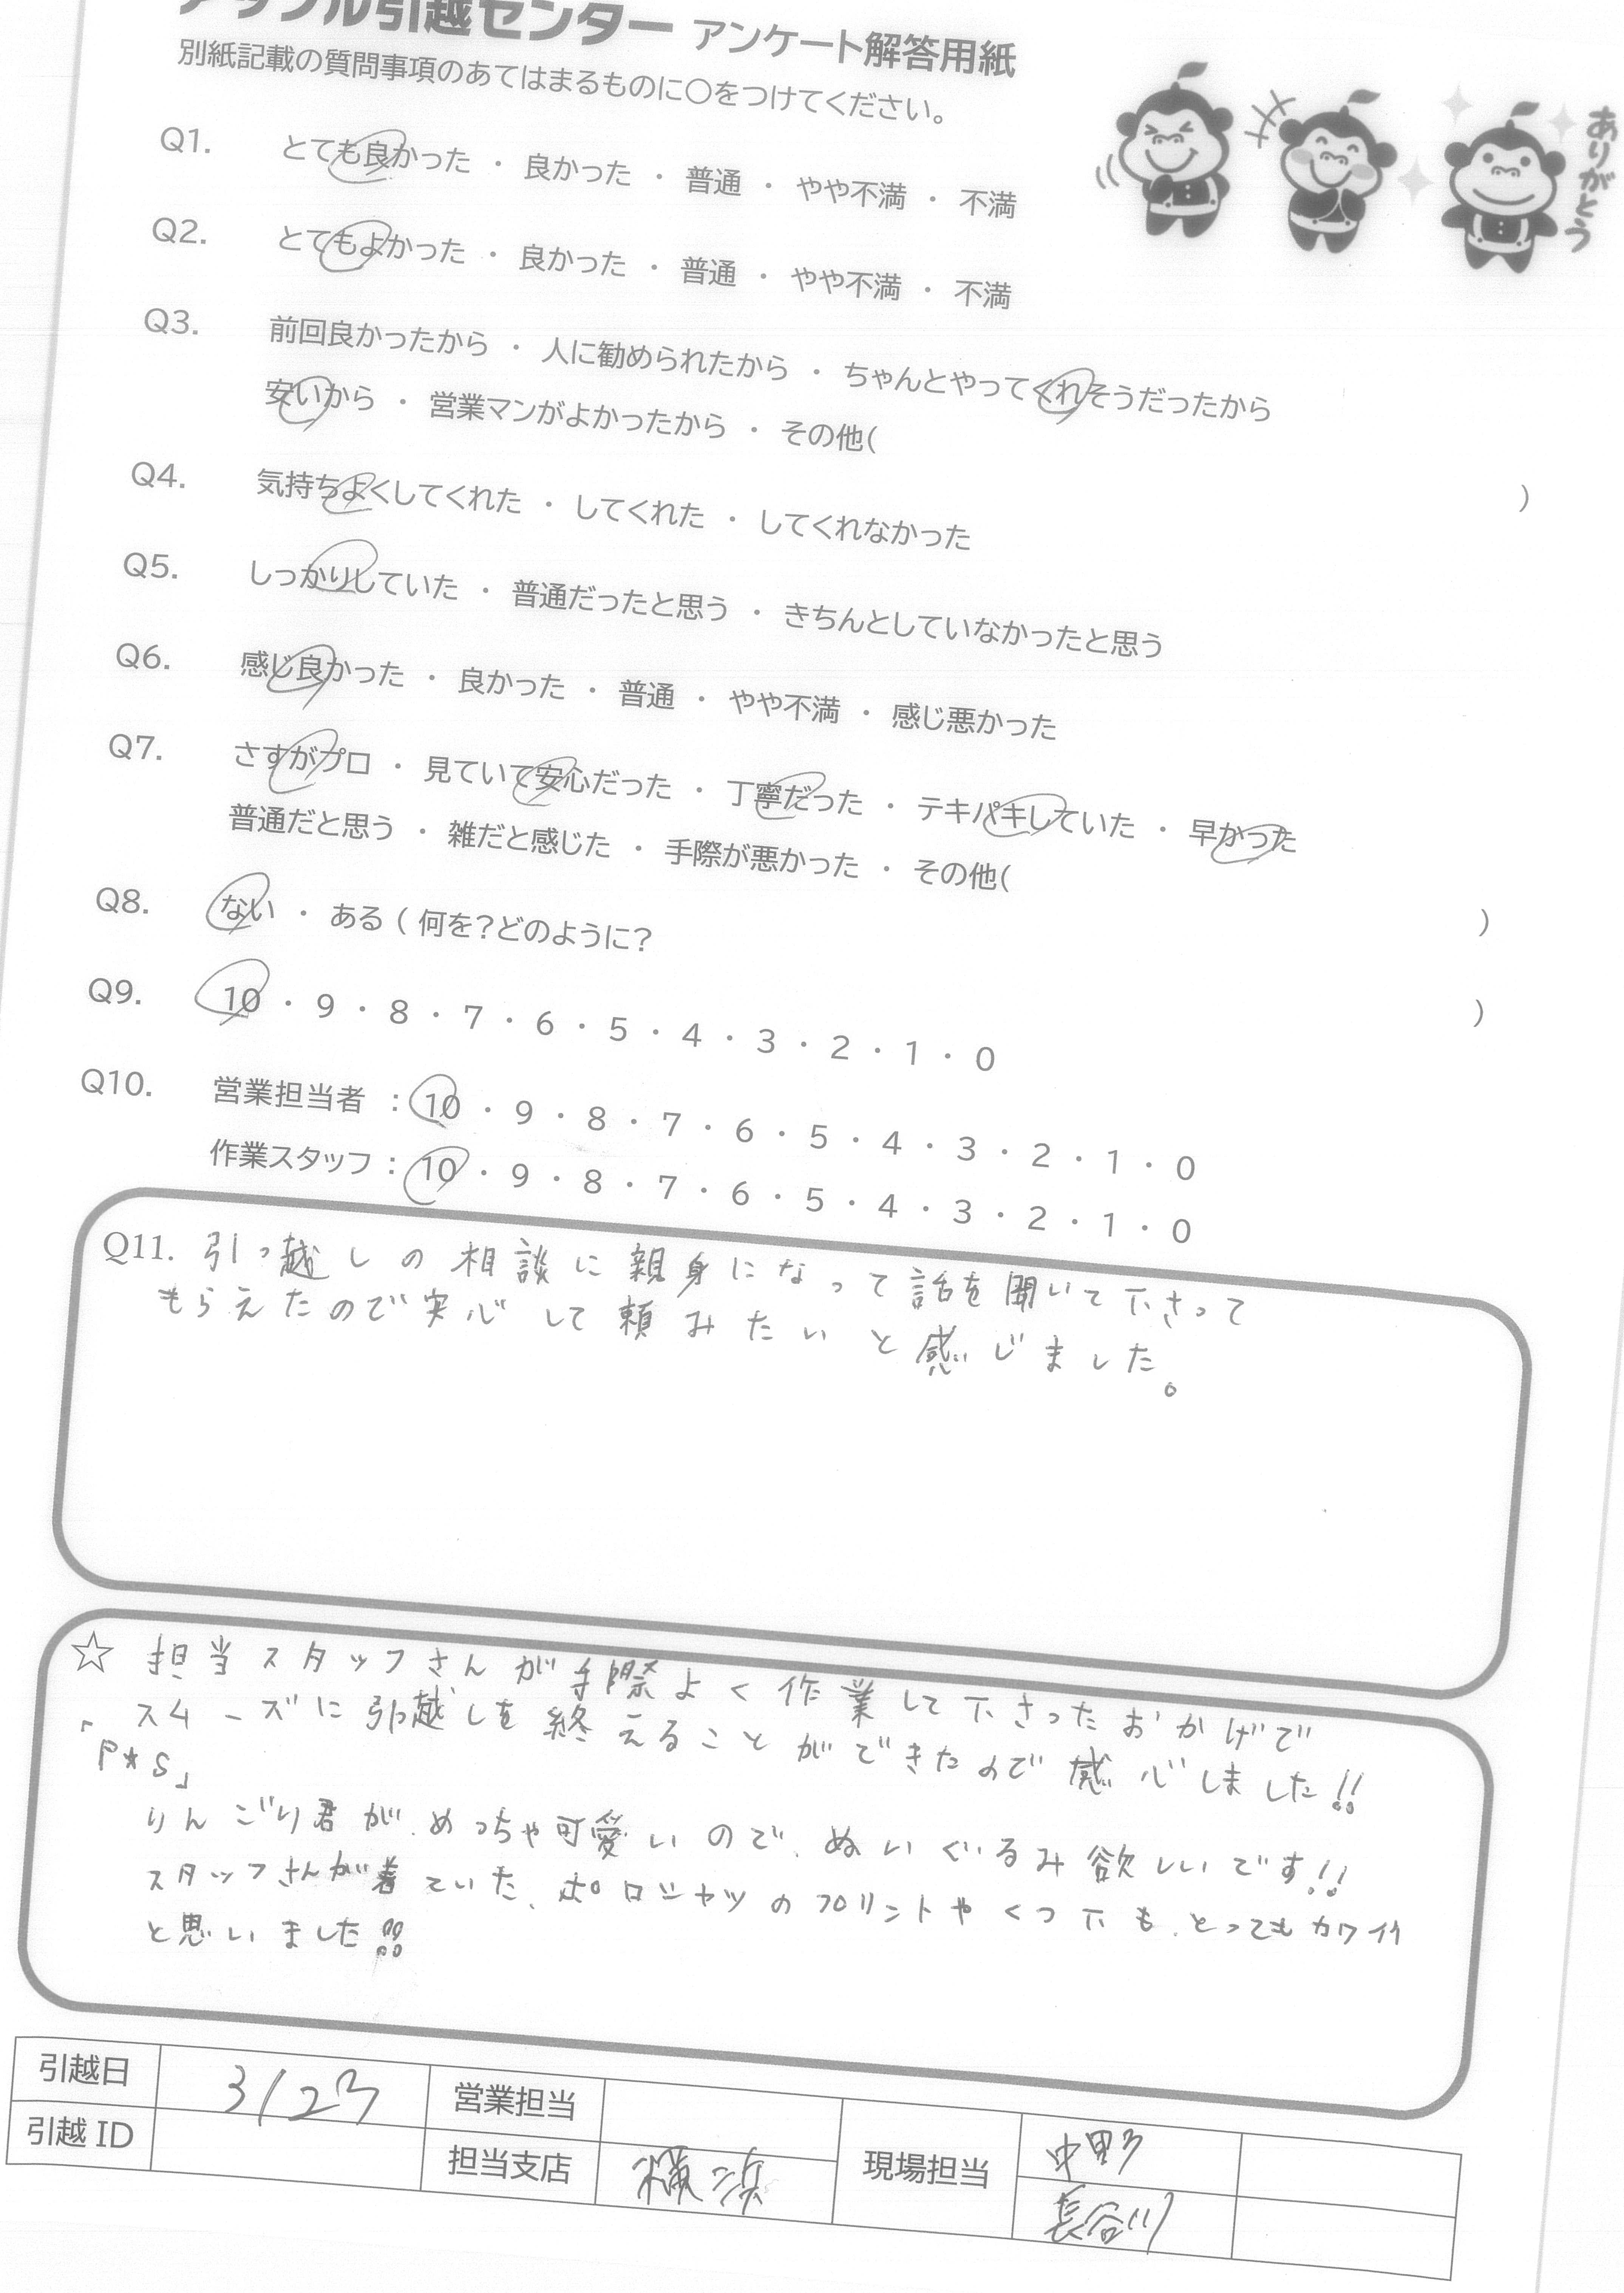 アップル引越センター アンケート解答用紙
別紙記載の質問事項のあてはまるものに〇をつけてください。
ありがとう
Q1. とても良かった ・ 良かった ・ 普通 ・ やや不満 ・ 不満
Q2. とてもよかった ・ 良かった ・ 普通 ・ やや不満 ・ 不満
Q3. 前回良かったから ・ 人に勧められたから ・ ちゃんとやってくれそうだったから
安いから ・ 営業マンがよかったから ・ その他( )
Q4. 気持ちよくしてくれた ・ してくれた ・ してくれなかった
Q5. しっかりしていた ・ 普通だったと思う ・ きちんとしていなかったと思う
Q6. 感じ良かった ・ 良かった ・ 普通 ・ やや不満 ・ 感じ悪かった
Q7. さすがプロ ・ 見ていて安心だった ・ 丁寧だった ・ テキパキしていた ・ 早かった
普通だと思う ・ 雑だと感じた ・ 手際が悪かった ・ その他( )
Q8. ない ・ ある ( 何を?どのように? )
Q9. 10 ・ 9 ・ 8 ・ 7 ・ 6 ・ 5 ・ 4 ・ 3 ・ 2 ・ 1 ・ 0
Q10. 営業担当者 : 10 ・ 9 ・ 8 ・ 7 ・ 6 ・ 5 ・ 4 ・ 3 ・ 2 ・ 1 ・ 0
作業スタッフ : 10 ・ 9 ・ 8 ・ 7 ・ 6 ・ 5 ・ 4 ・ 3 ・ 2 ・ 1 ・ 0
Q11. 引っ越しの相談に親身になって話を聞いて下さって
もらえたので安心して頼みたいと感じました。
☆ 担当スタッフさんが手際よく作業して下さったおかげで
スムーズに引越しを終えることができたので感心しました!!
「P★S」
りんごり君が、めっちゃ可愛いので、ぬいぐるみ欲しいです!!
スタッフさんが着ていた、ポロシャツのプリントやくつ下も、とってもカワイイ
と思いました!!
引越日 3/23 営業担当
引越 ID 担当支店 横浜 現場担当 中野
長谷川